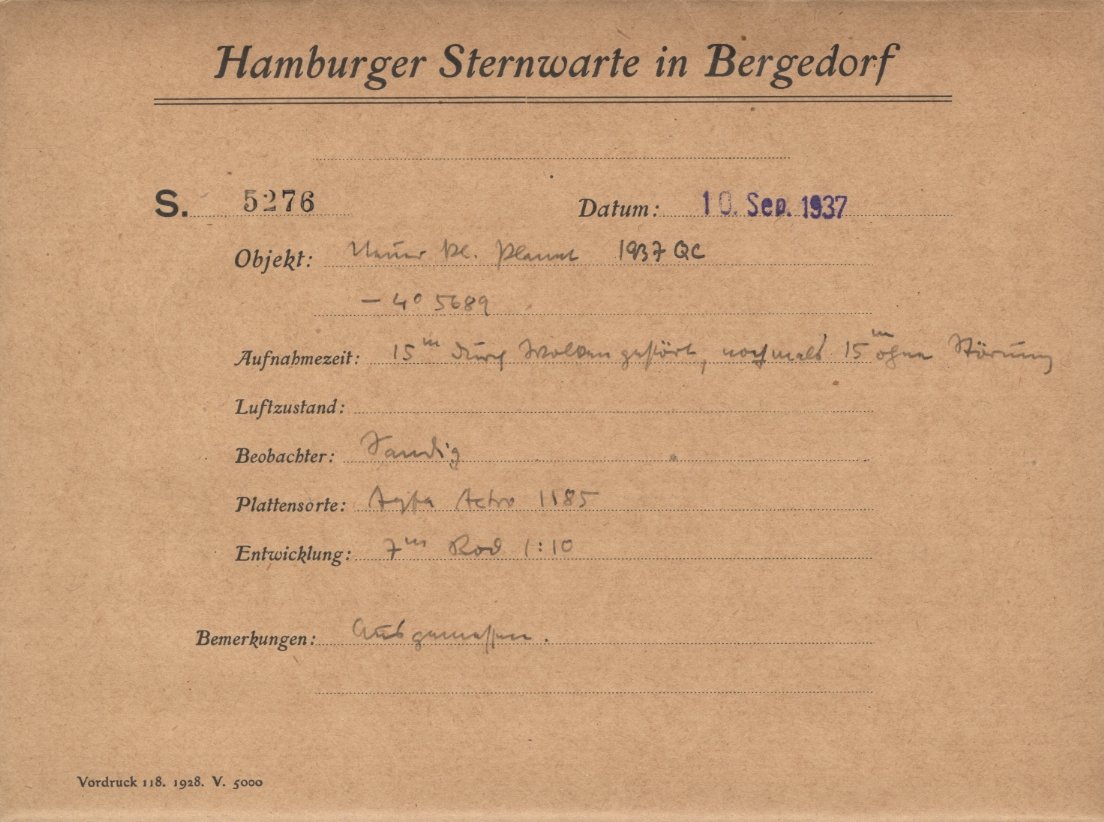 Hamburger Sternwarte in Bergedorf
S. 5276 Datum: 10. Sep. 1937
Objekt: Neuer kl. Planet 1937 QC
– 4° 5689
Aufnahmezeit: 15ᵐ durch Wolken gestört, nochmals 15ᵐ ohne Störung
Luftzustand:
Beobachter: Sandig
Plattensorte: Agfa Astro 1185
Entwicklung: 7ᵐ Rod 1:10
Bemerkungen: Ausgemessen.
Vordruck 118. 1928. V. 5000